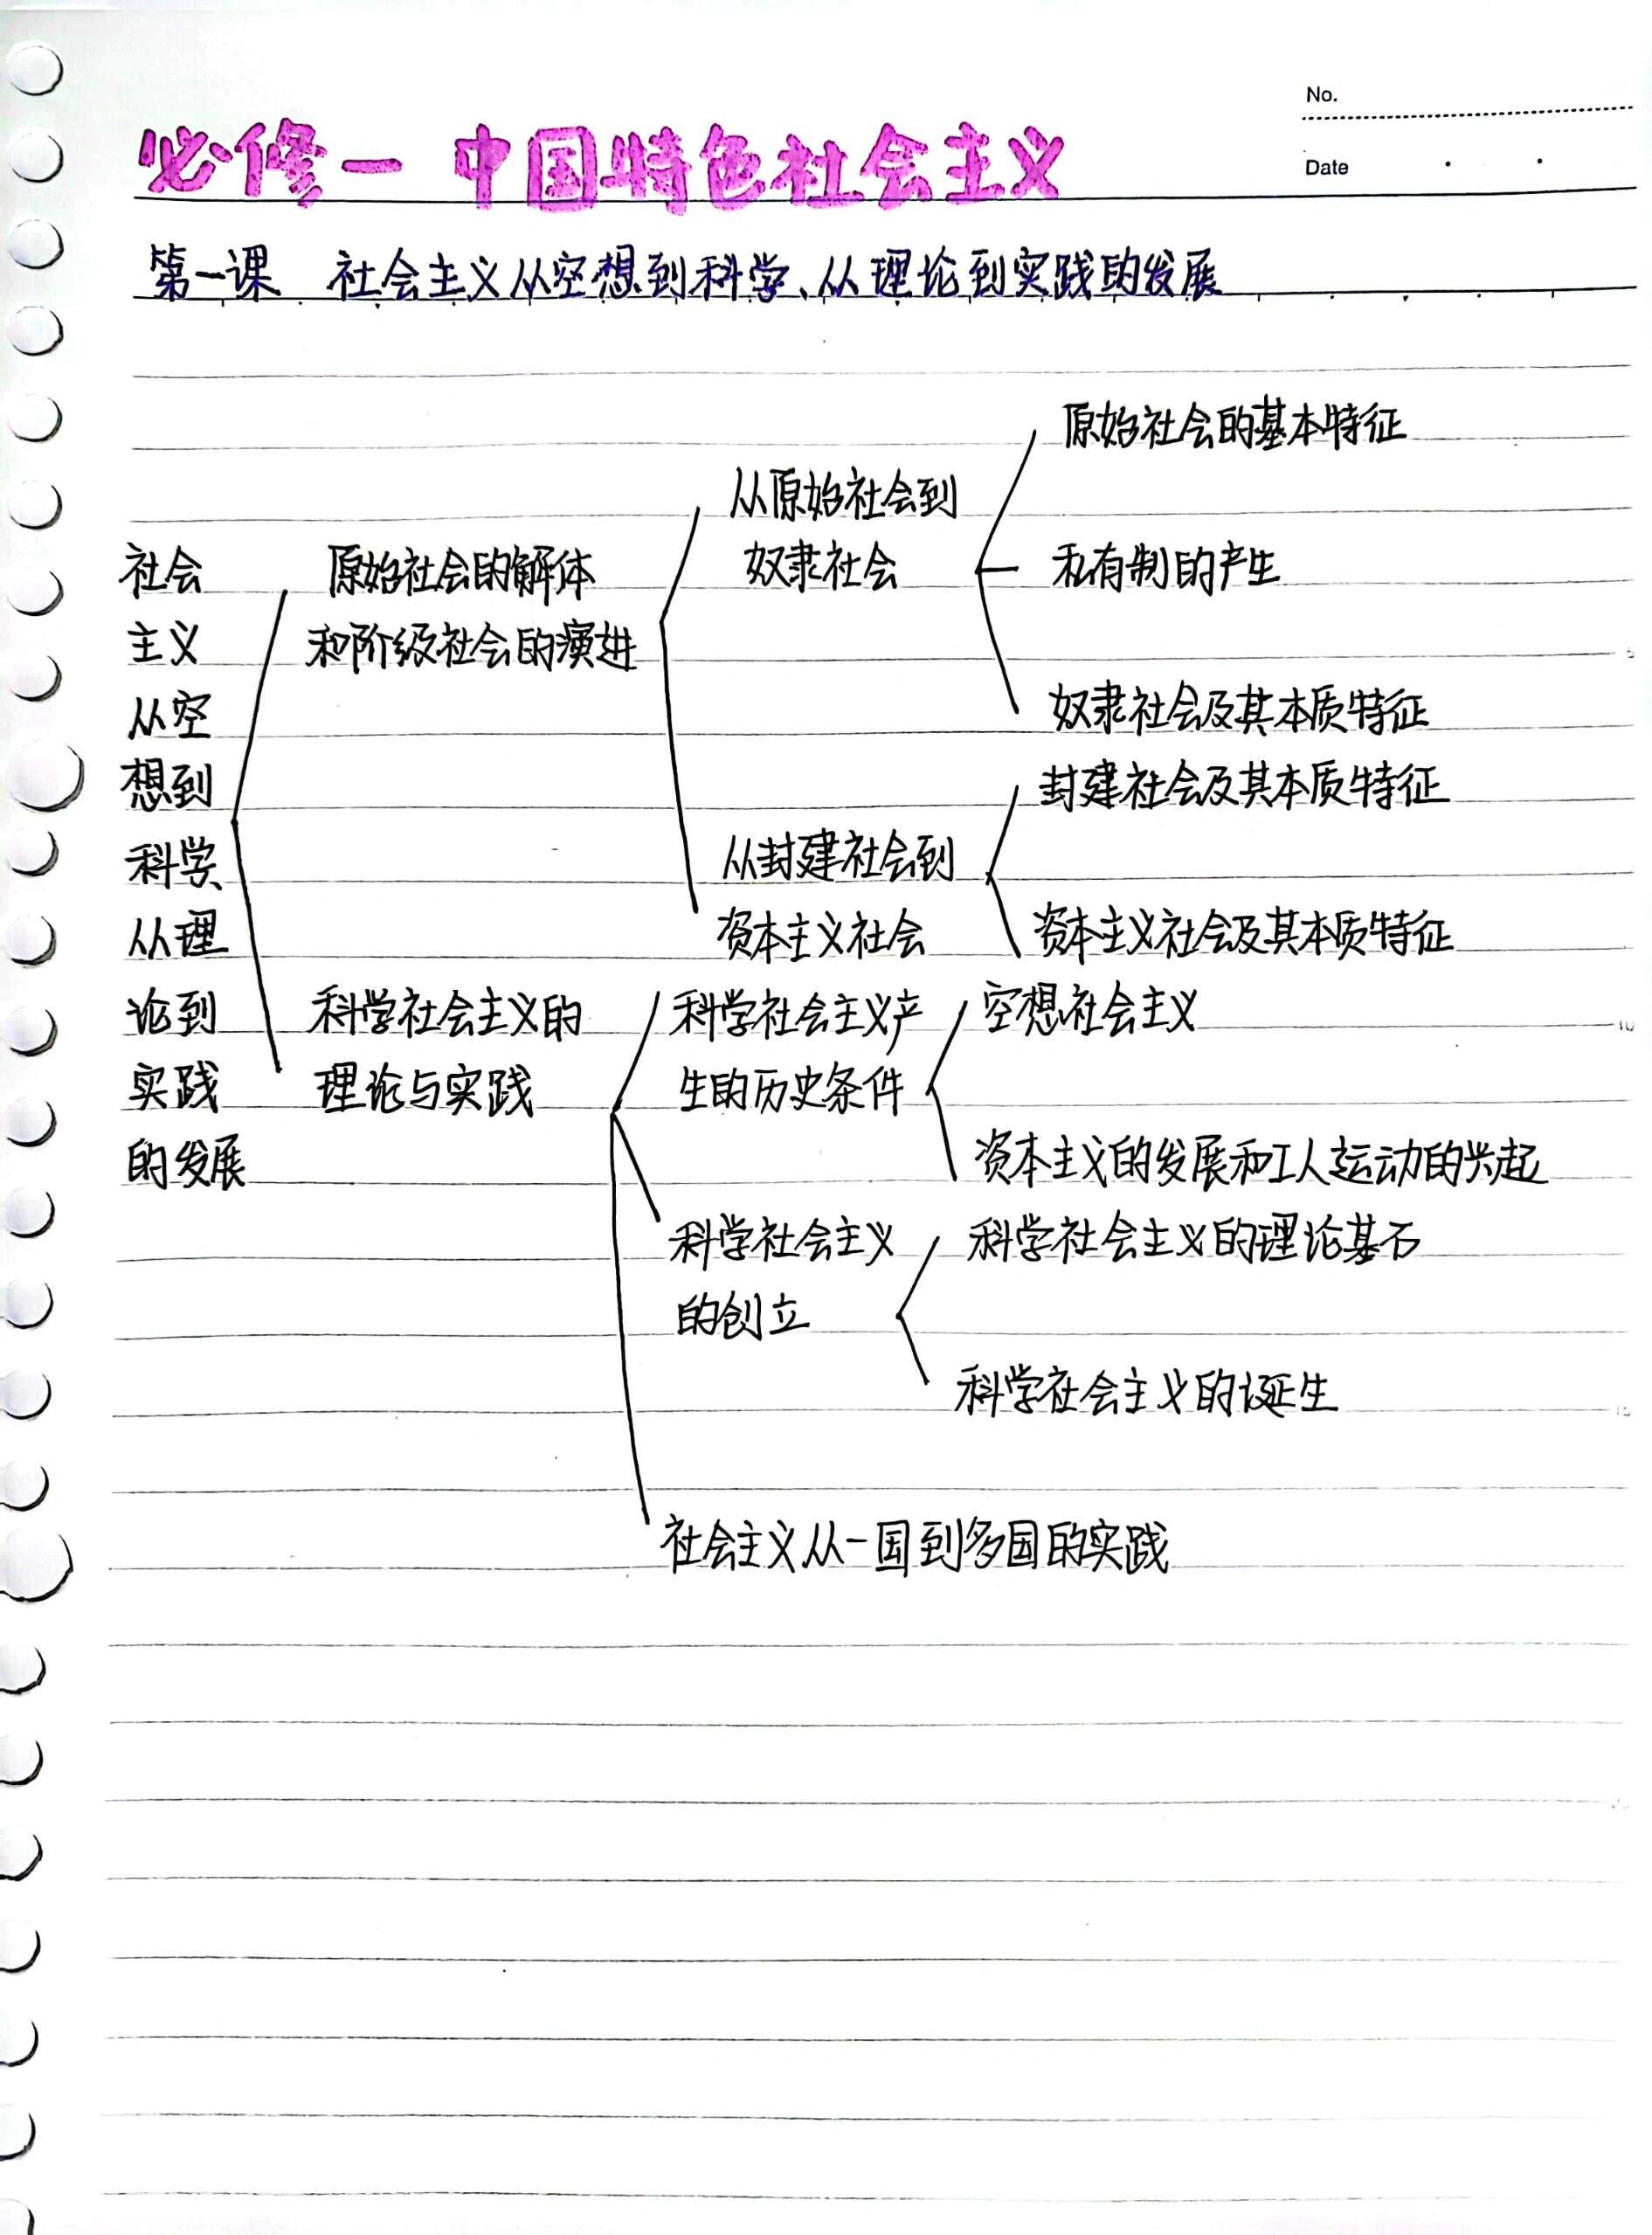 No.
必修一 中国特色社会主义
Date
第一课 社会主义从空想到科学、从理论到实践的发展
社会
主义
从空
想到
科学、
从理
论到
实践
的发展
原始社会的解体
和阶级社会的演进
从原始社会到
奴隶社会
原始社会的基本特征
私有制的产生
奴隶社会及其本质特征
从封建社会到
资本主义社会
封建社会及其本质特征
资本主义社会及其本质特征
科学社会主义的
理论与实践
科学社会主义产
生的历史条件
空想社会主义
资本主义的发展和工人运动的兴起
科学社会主义
的创立
科学社会主义的理论基石
科学社会主义的诞生
社会主义从一国到多国的实践
5
10
15